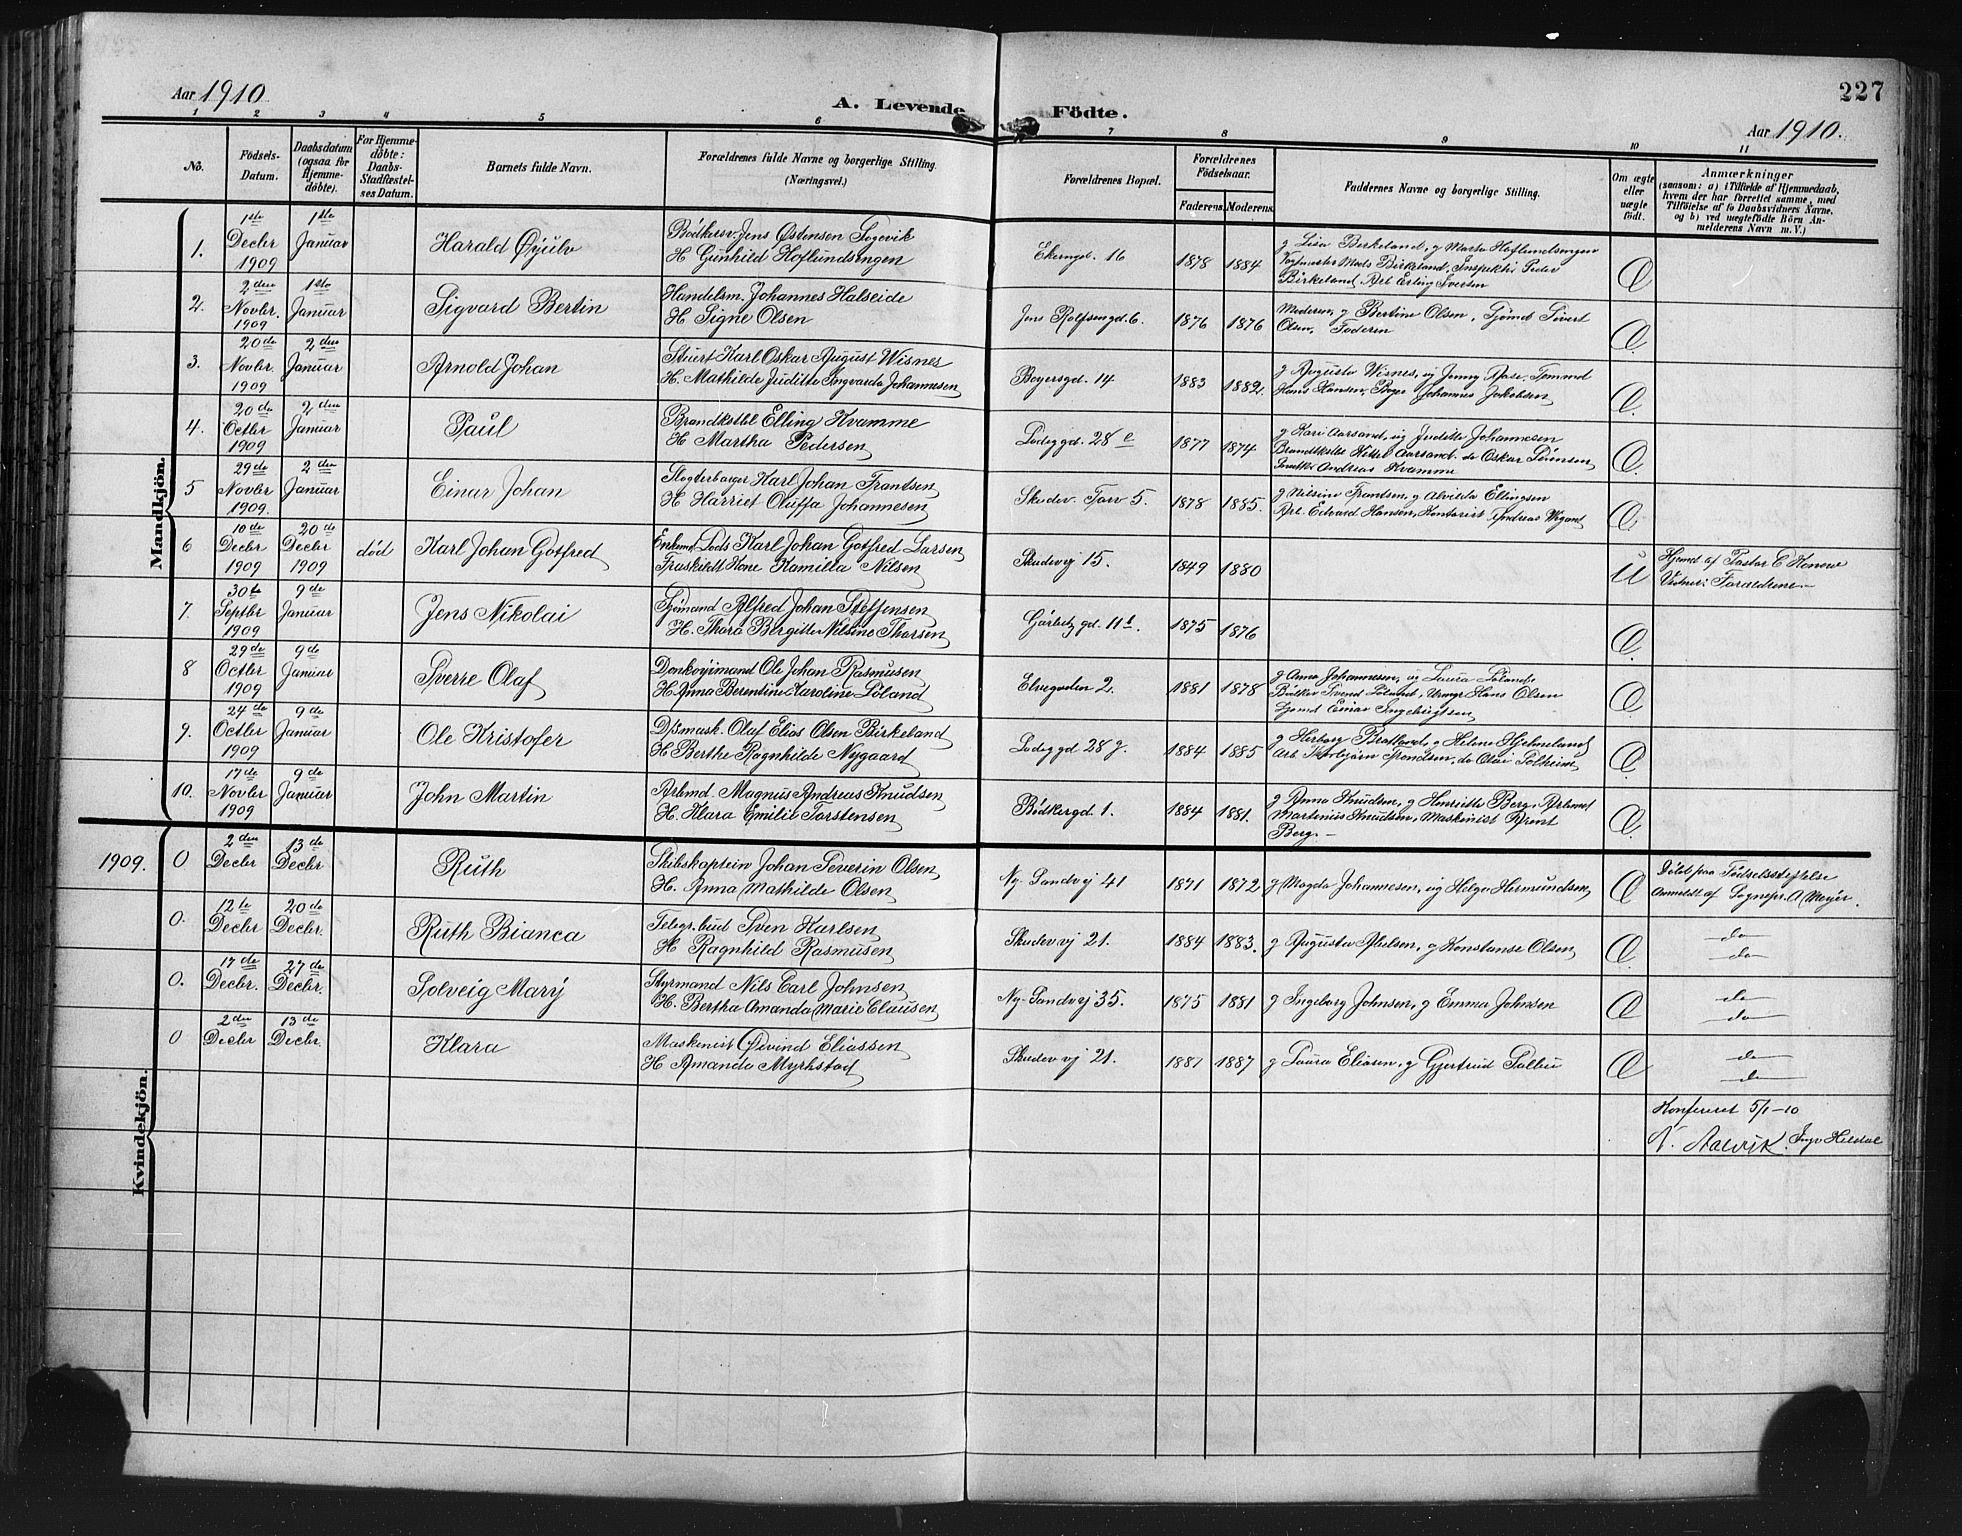 Aar 1910
A. Levende Födte.
227
Aar 1910.
1 2 3 4 5 6 7 8 9 10 11
No.
Födsels-Datum.
Daabsdatum (ogsaa for Hjemmedöbte).
For Hjemmedöbte: Daabs-Stadfæstelses Datum.
Barnets fulde Navn.
Forældrenes fulde Navne og borgerlige Stilling. (Næringsvei.)
Forældrenes Bopæl.
Forældrenes Födselsaar.
Faderens. Moderens.
Faddernes Navne og borgerlige Stilling.
Om ægte eller uægte födt.
Anmærkninger (saasom: a) i Tilfælde af Hjemmedaab, hvem der har forrettet samme, med Tilföielse af to Daabsvidners Navne, og b) ved uægtefödte Börn Anmelderens Navn m. V.)
Mandkjön.
1. 1ste Decbr 1909 1ste Januar Harald Øyulv
Jens Østensen Sogevik
H Gunhild Hoflundsengen
Ekerngd. 16 1878 1884
g Lisa Birkeland, g Marta Hoflundsengen
Mads Birkeland, Inspektør Peder
Birkeland, Arb Erling Iversen
2. 2den Novbr. 1909 1ste Januar Sigvard Bertin
Handelsm. Johannes Halseide
H Signe Olsen
Jens Rolfsengd. 6. 1876 1876
Moderen, g Bertine Olsen, Sjømd Sivert
Olsen, Faderen
3. 20de Novbr. 1909 2den Januar Arnold Johan
Stuert Karl Oskar August Wisnes
H. Mathilde Juditte Ingvarda Johannesen
Boyersgd. 14 1883 1882.
g Augusta Wisnes, ug Jenny Aase, Tømmd
Hans Hansen, Johannes Jakobsen
4. 20de Octbr 1909 2den Januar Paul
Brandkstbl Elling Kvamme
H Martha Pedersen
Lodeggd. 28 e 1877 1874
g Kari Aarsand, ug Juditte Johannesen
Brandkstbl Aarsand. do Oskar Sørensen,
Andreas Kvamme
5 29de Novbr 1909. 2den Januar Einar Johan
Karl Johan Frantsen
H Harriet Oluffa Johannesen
Skudev. Torv 5. 1878 1885.
g Nilsine Frantsen, g Alvilda Ellingsen
Arb. Edvard Hansen, Kontorist Andreas Wigand
6 10de Decbr 1909 20de Decbr 1909 død Karl Johan Gotfred
Enkemd Lods Karl Johan Gotfred Larsen
Fraskildt Kone Kamilla Nilsen
Skudevij 15. 1849 1880 U
Hjemd af Pastor C Konow
Vidner: Forældrene
7. 30te Septbr 1909 9de Januar Jens Nikolai
Sjømand Alfred Johan Steffensen
H. Thora Bergitte Nilsine Thorsen
11 b. 1875 1876
8 29de Octbr 1909 9de Januar Sverre Olaf
Ole Johan Rasmusen
H. Anna Berentine Karoline Løland
Elvegaden 2. 1881 1878
g Anna Johannesen, ug Laura Løland,
Bødker Svend Løland, Hans Olsen
Sjømd Einar Ingebrigtsen
9. 24de Octbr 1909 9de Januar Ole Kristofer
Olaf Elias Olsen Birkeland
H Berthe Ragnhilde Nygaard
Lodeggd 28 g. 1884 1885
g Herborg Bratland, g Helene Hjelmeland
Arb. Torbjørn Trondsen, do Olai Solheim
10. 17de Novbr 1909 9de Januar John Martin
Arbmd Magnus Andreas Knudsen
H. Klara Emilie Torstensen
Bødkergd 1. 1884 1881.
g Anna Knudsen, g Henriette Berg, Arbmd
Martinius Knudsen, Maskinist Arent
Berg. —
Kvindekjön.
1909. 0 2den Decbr 13de Decbr Ruth
Skibskaptein Johan Severin Olsen
H. Anna Mathilde Olsen
Ny. Sandvij 41 1871 1872
g Magda Johannesen, ug Helga Hermundsen,
Døbt paa Fødselsstiftelse
Anmeldt af Sognepr. A Meyer.
0. 12te Decbr 20de Decbr. Ruth Bianca
Telegr.bud Sven Karlsen
H Ragnhild Rasmusen
Skudevvj 21. 1884 1883.
g Augusta Abelsen, g Konstanse Olsen
do
do
0. 17de Decbr. 27de Decbr. Solveig Mary
Styrmand Nils Carl Johnsen
H. Bertha Amanda Marie Clausen
Ny. Sandvj 35. 1875 1881
g Ingeborg Johnsen, g Emma Johnsen
do
do
0 2den Decbr 13de Decbr. Klara
Maskinist Øivind Eliassen
H Amanda Myrhstad
Skudev vj 21. 1881 1887
g Laura Eliasen, g Gjertrud Sollie
do
do
Konfereret 5/1-10
N. Aalvik. Inga Hildal